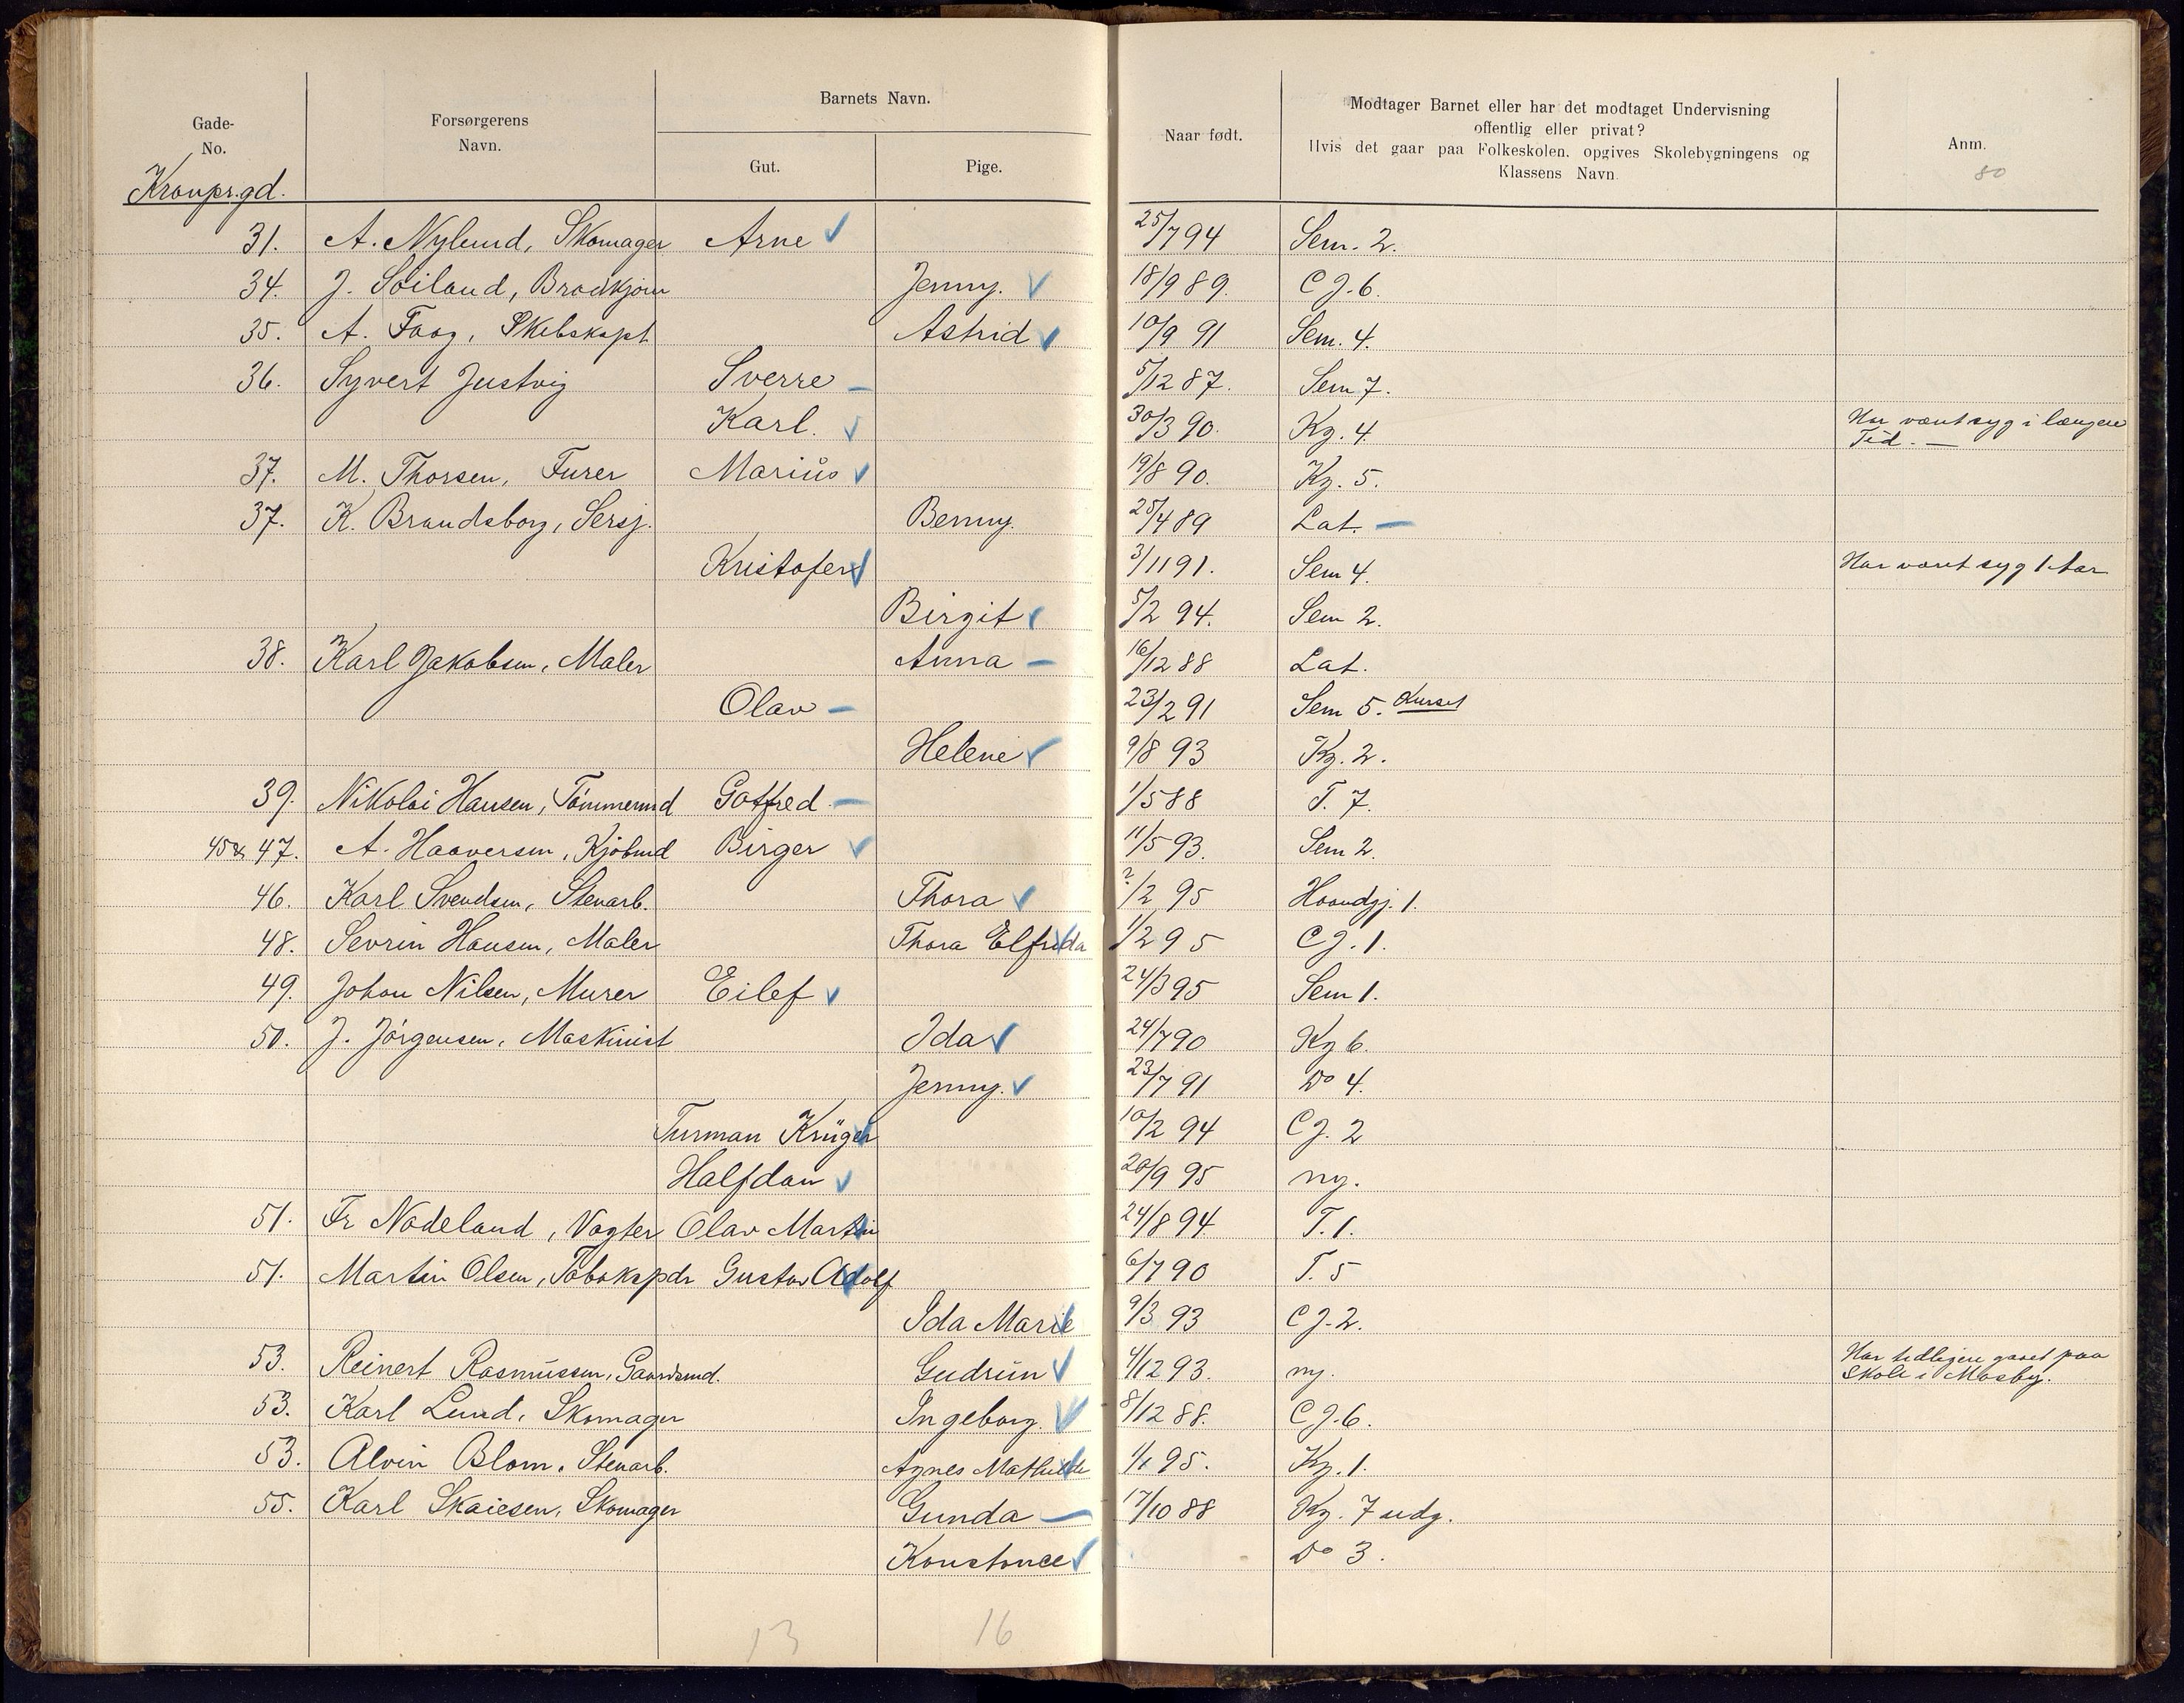 Barnets Navn.
Gade-
No.
Forsørgerens
Navn.
Gut.
Pige.
Naar født.
Modtager Barnet eller har det modtaget Undervisning
offentlig eller privat?
Hvis det gaar paa Folkeskolen, opgives Skolebygningens og
Klassens Navn.
Anm.
80
Kronpr.gd.
31. A. Nylund, Skomager Arne 25/7 94 Sem. 2.
34. J. Soiland, Jenny. 18/9 89. C J. 6.
35. A. Foog, Skibskapt Astrid 10/9 91 Sem. 4.
36. Syvert Justvig Sverre 5/12 87. Sem 7.
Karl. 30/3 90. Kg. 4. Har været syg i længere
Tid.
37. M. Thorsen, Furer Marius 19/8 90. Kg. 5.
37. K. Brandsborg, Sersj. Benny. 25/4 89 Lat.
Kristofer 3/11 91. Sem 4. Har været syg 1 Aar
Birgit 5/2 94. Sem 2.
38. Karl Jakobsen, Maler Anna 16/12 88 Lat.
Olav 23/2 91 Sem 5. Kurset
Helene 9/8 93 Kg. 2.
39. Nikolai Hansen, Tømmermd Gotfred 1/5 88 T. 7.
45 & 47. A. Haaversen, Kjøbmd Birger 11/5 93. Sem 2.
46. Karl Svendsen, Stenarb. Thora ?/2 95 Haandgj. 1.
48. Sevrin Hansen, Maler Thora Elfrida 1/2 95 C J. 1.
49. Johan Nilsen, Murer Eilef 24/3 95 Sem 1.
50. J. Jörgensen, Maskinist Ida 24/7 90 Kg 6.
Jenny. 23/7 91 Do 4.
Turman Krüger 10/2 94 C J. 2
Halfdan 20/9 95 ny.
51. Fr Nodeland, Vagter Olav Martin 24/8 94. T. 1.
51. Martin Olsen, Tobakspdr Gustav Adolf 6/7 90 T. 5
Ida Marie 9/3 93 C J. 2.
53. Reinert Rasmussen, Gaardsmd. Gudrun 4/12 93. ny. Har tidligere gaaet paa
Skole i Mosby.
53. Karl Lund, Skomager Ingeborg. 8/12 88. C J. 6.
53. Alvin Blom, Stenarb. Agnes Mathilde 1/1 95. Kg. 1.
55. Karl Skaiesen, Skomager Gunda 17/10 88 Kg. 7 udg.
Konstance Do 3.
13 16